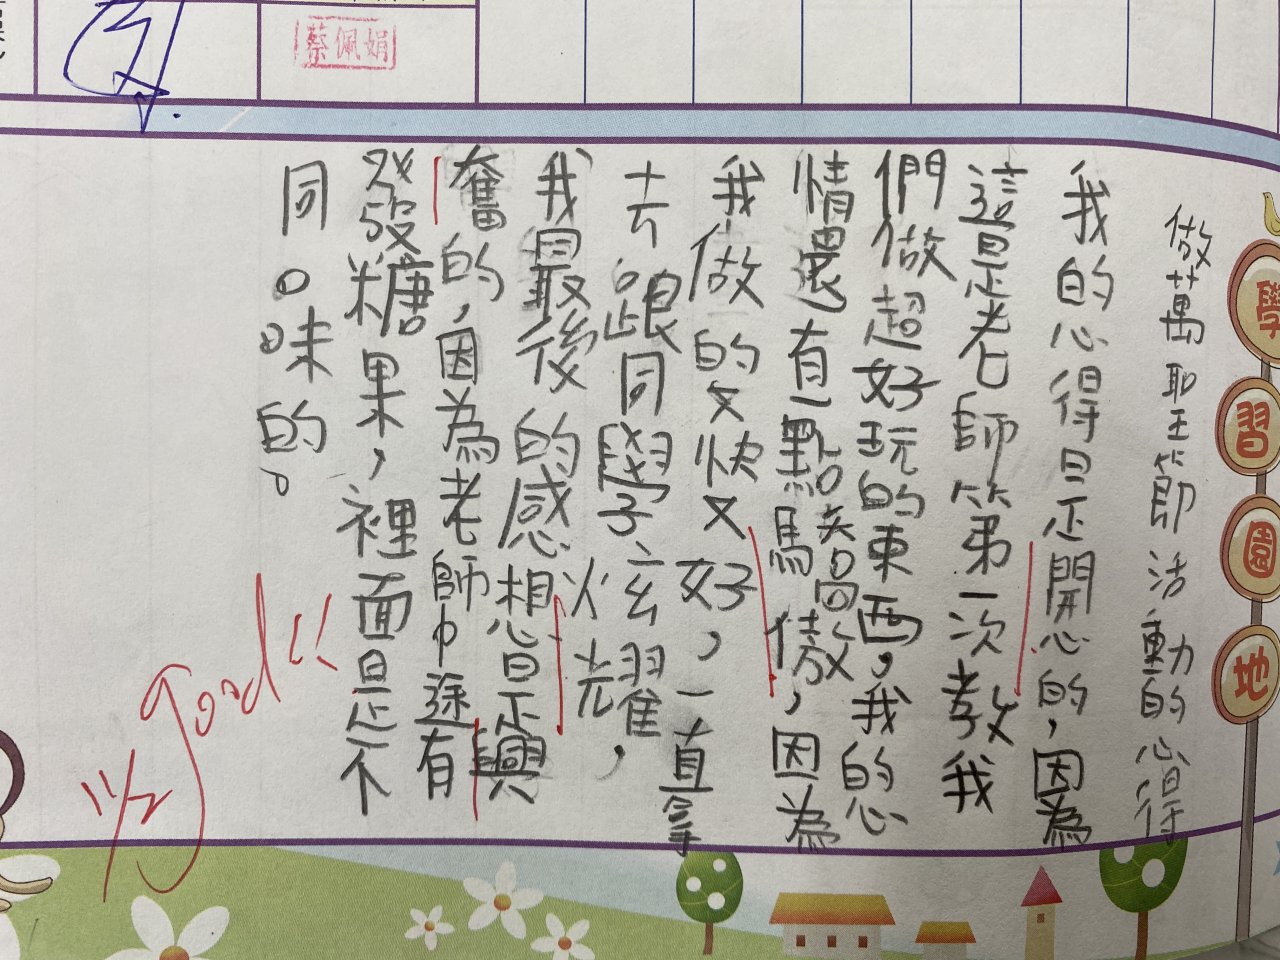 蔡佩娟
學習園地
做萬聖節活動的心得
我的心得是開心的，因為
這是老師第一次教我
們做超好玩的東西，我的心
情還有一點驕傲，因為
我做的又快又好，一直拿
去跟同學炫耀，
我最後的感想是興
奮的，因為老師中途有
發糖果，裡面是不
同口味的。
good!!
11/2